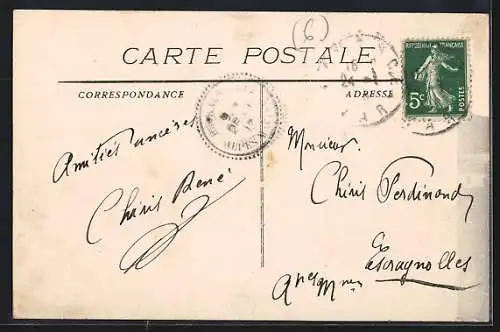 (6)
CARTE POSTALE
CORRESPONDANCE
ADRESSE
RÉPUBLIQUE FRANÇAISE
5c
POSTES
Amitiés sincères
Chiris René
Monsieur
Chiris Ferdinand
Escragnolles
Apes Mmes